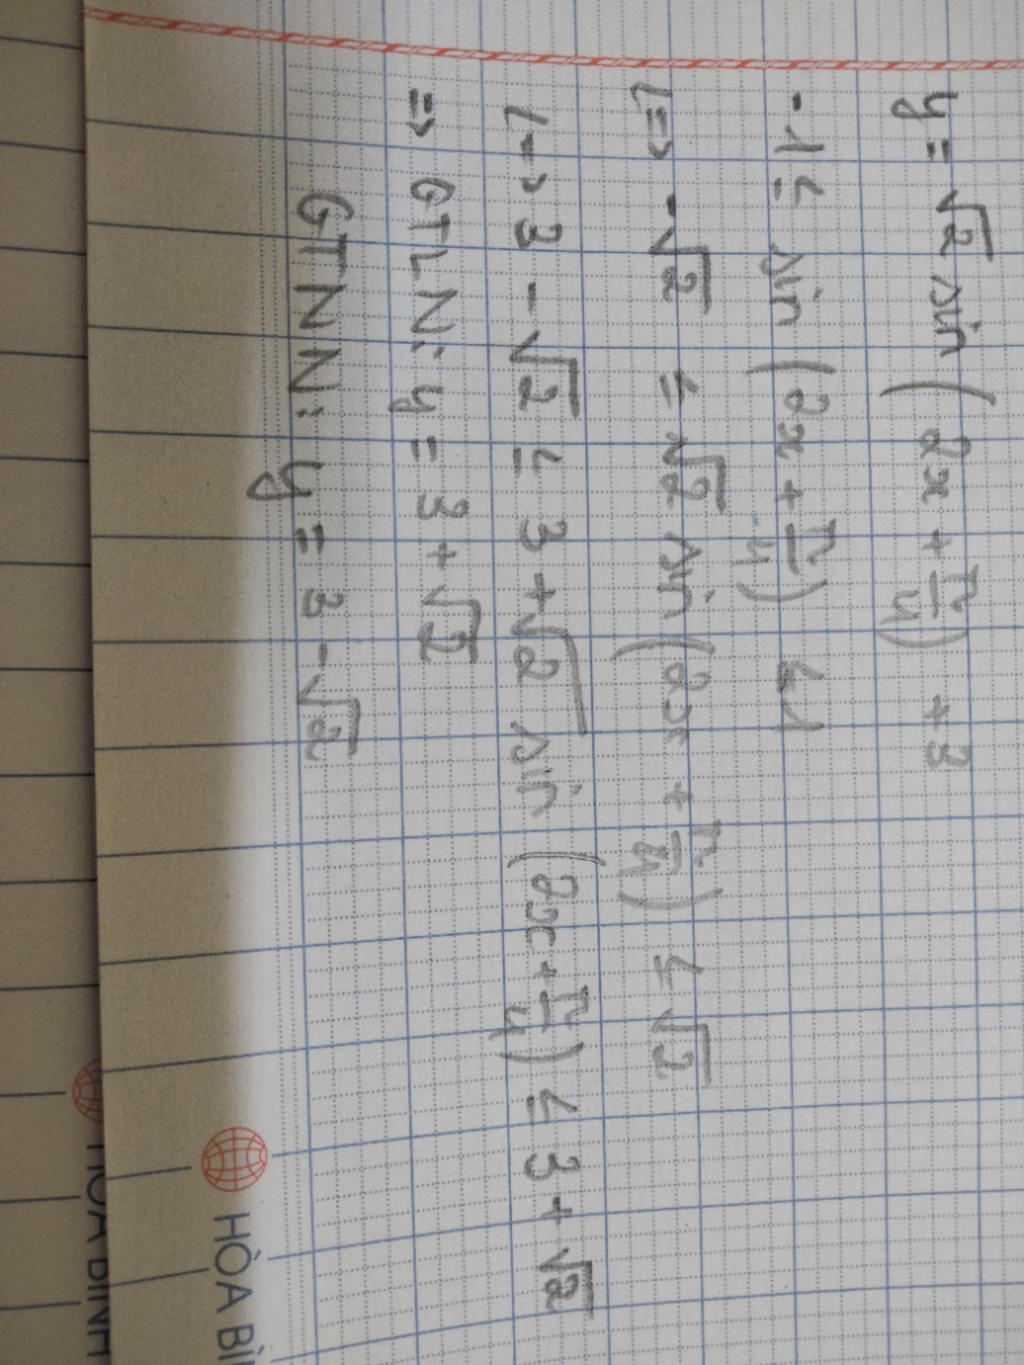 y = √2 sin (2x + π/4) + 3
-1 ≤ sin (2x + π/4) ≤ 1
<=> -√2 ≤ √2 sin (2x + π/4) ≤ √2
<=> 3 - √2 ≤ 3 + √2 sin (2x + π/4) ≤ 3 + √2
=> GTLN: y = 3 + √2
GTNN: y = 3 - √2
HÒA BÌ
HÒA BÌNH